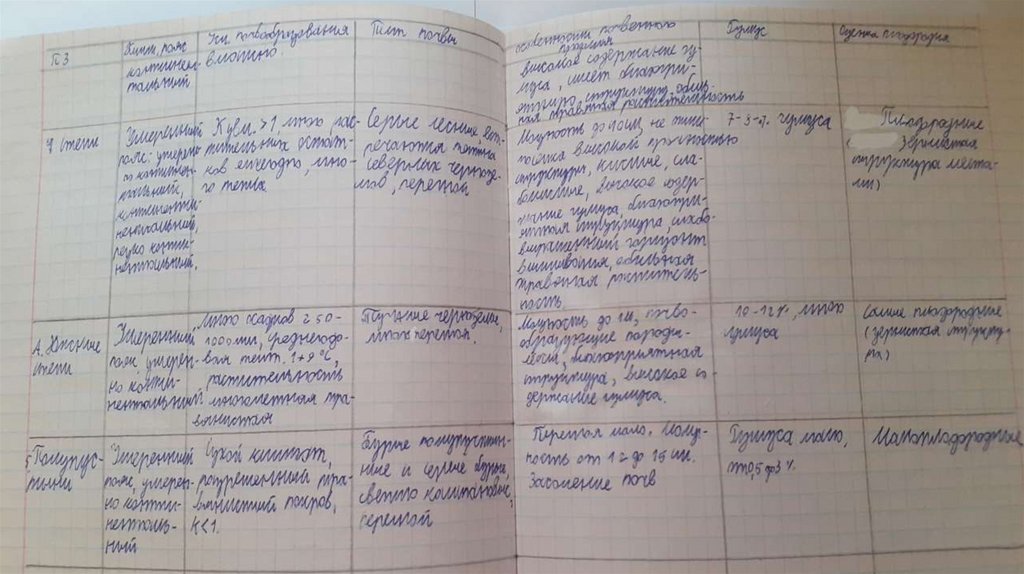 ПЗ
Клим. пояс
континен-
тальный
Усл. почвообразования
влажно
Тип почвы
особенности почвенного
профиля
высокое содержание гу-
муса, имеет благопри-
ятную структуру, обиль-
ная травяная растительность
Гумус
Оценка плодородия
Степи
Умеренный
пояс: умерен-
но континен-
тальный,
континента-
резко конти-
нентальный.
К увл. >1, много рас-
тительных остат-
ков ежегодно, мно-
го тепла
Серые лесные, вст-
речаются пятна
северных чернозе-
мов, перегной
Мощность до 10 см, не
высокой прочностью
структуры, кислые, сла-
бокислые, высокое содер-
жание гумуса, благопри-
ятная структура,
горизонт
вмывания, обильная
травяная раститель-
ность
7-3-%. гумуса
Плодородные
(зернистая
структура места-
ми)
4. Южные
степи
Умеренный
пояс, умерен-
но конти-
нентальный
много осадков 250-
1000 мм, среднегодо-
вая темп. 1+9°С,
растительность
многолетняя тра-
вянистая
черноземы,
много перегноя.
Мощность до 1 м, почво-
образующие породы-
благоприятная
структура, высокое со-
держание гумуса.
10-12%, много
гумуса
Самые плодородные
(зернистая структу-
ра)
5. Полупус-
тыни
Умеренный
пояс, умерен-
но конти-
ненталь-
ный
Сухой климат,
разреженный тра-
вянистый покров,
К<1.
Бурые полупустын-
ные и серые бурые,
светло каштановые,
перегной
Перегноя мало. Мощ-
ность от 12 до 15 см.
Засоление почв
Гумуса мало,
от 0,5 до 3%.
Малоплодородные